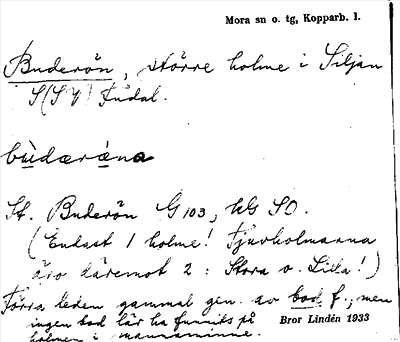 Mora sn o. tg, Kopparb. l.
Buderön, större holme i Siljan
S(SV) Fudal.
bùdæræ̀na
St. Buderön G 103, hG SO.
(Endast 1 holme! Tjurholmarna
äro däremot 2 : Stora o. Lilla!)
Förra leden gammal gen. av bod f., men
ingen bod lär ha funnits på
holmen i mannaminne.
Bror Lindén 1933